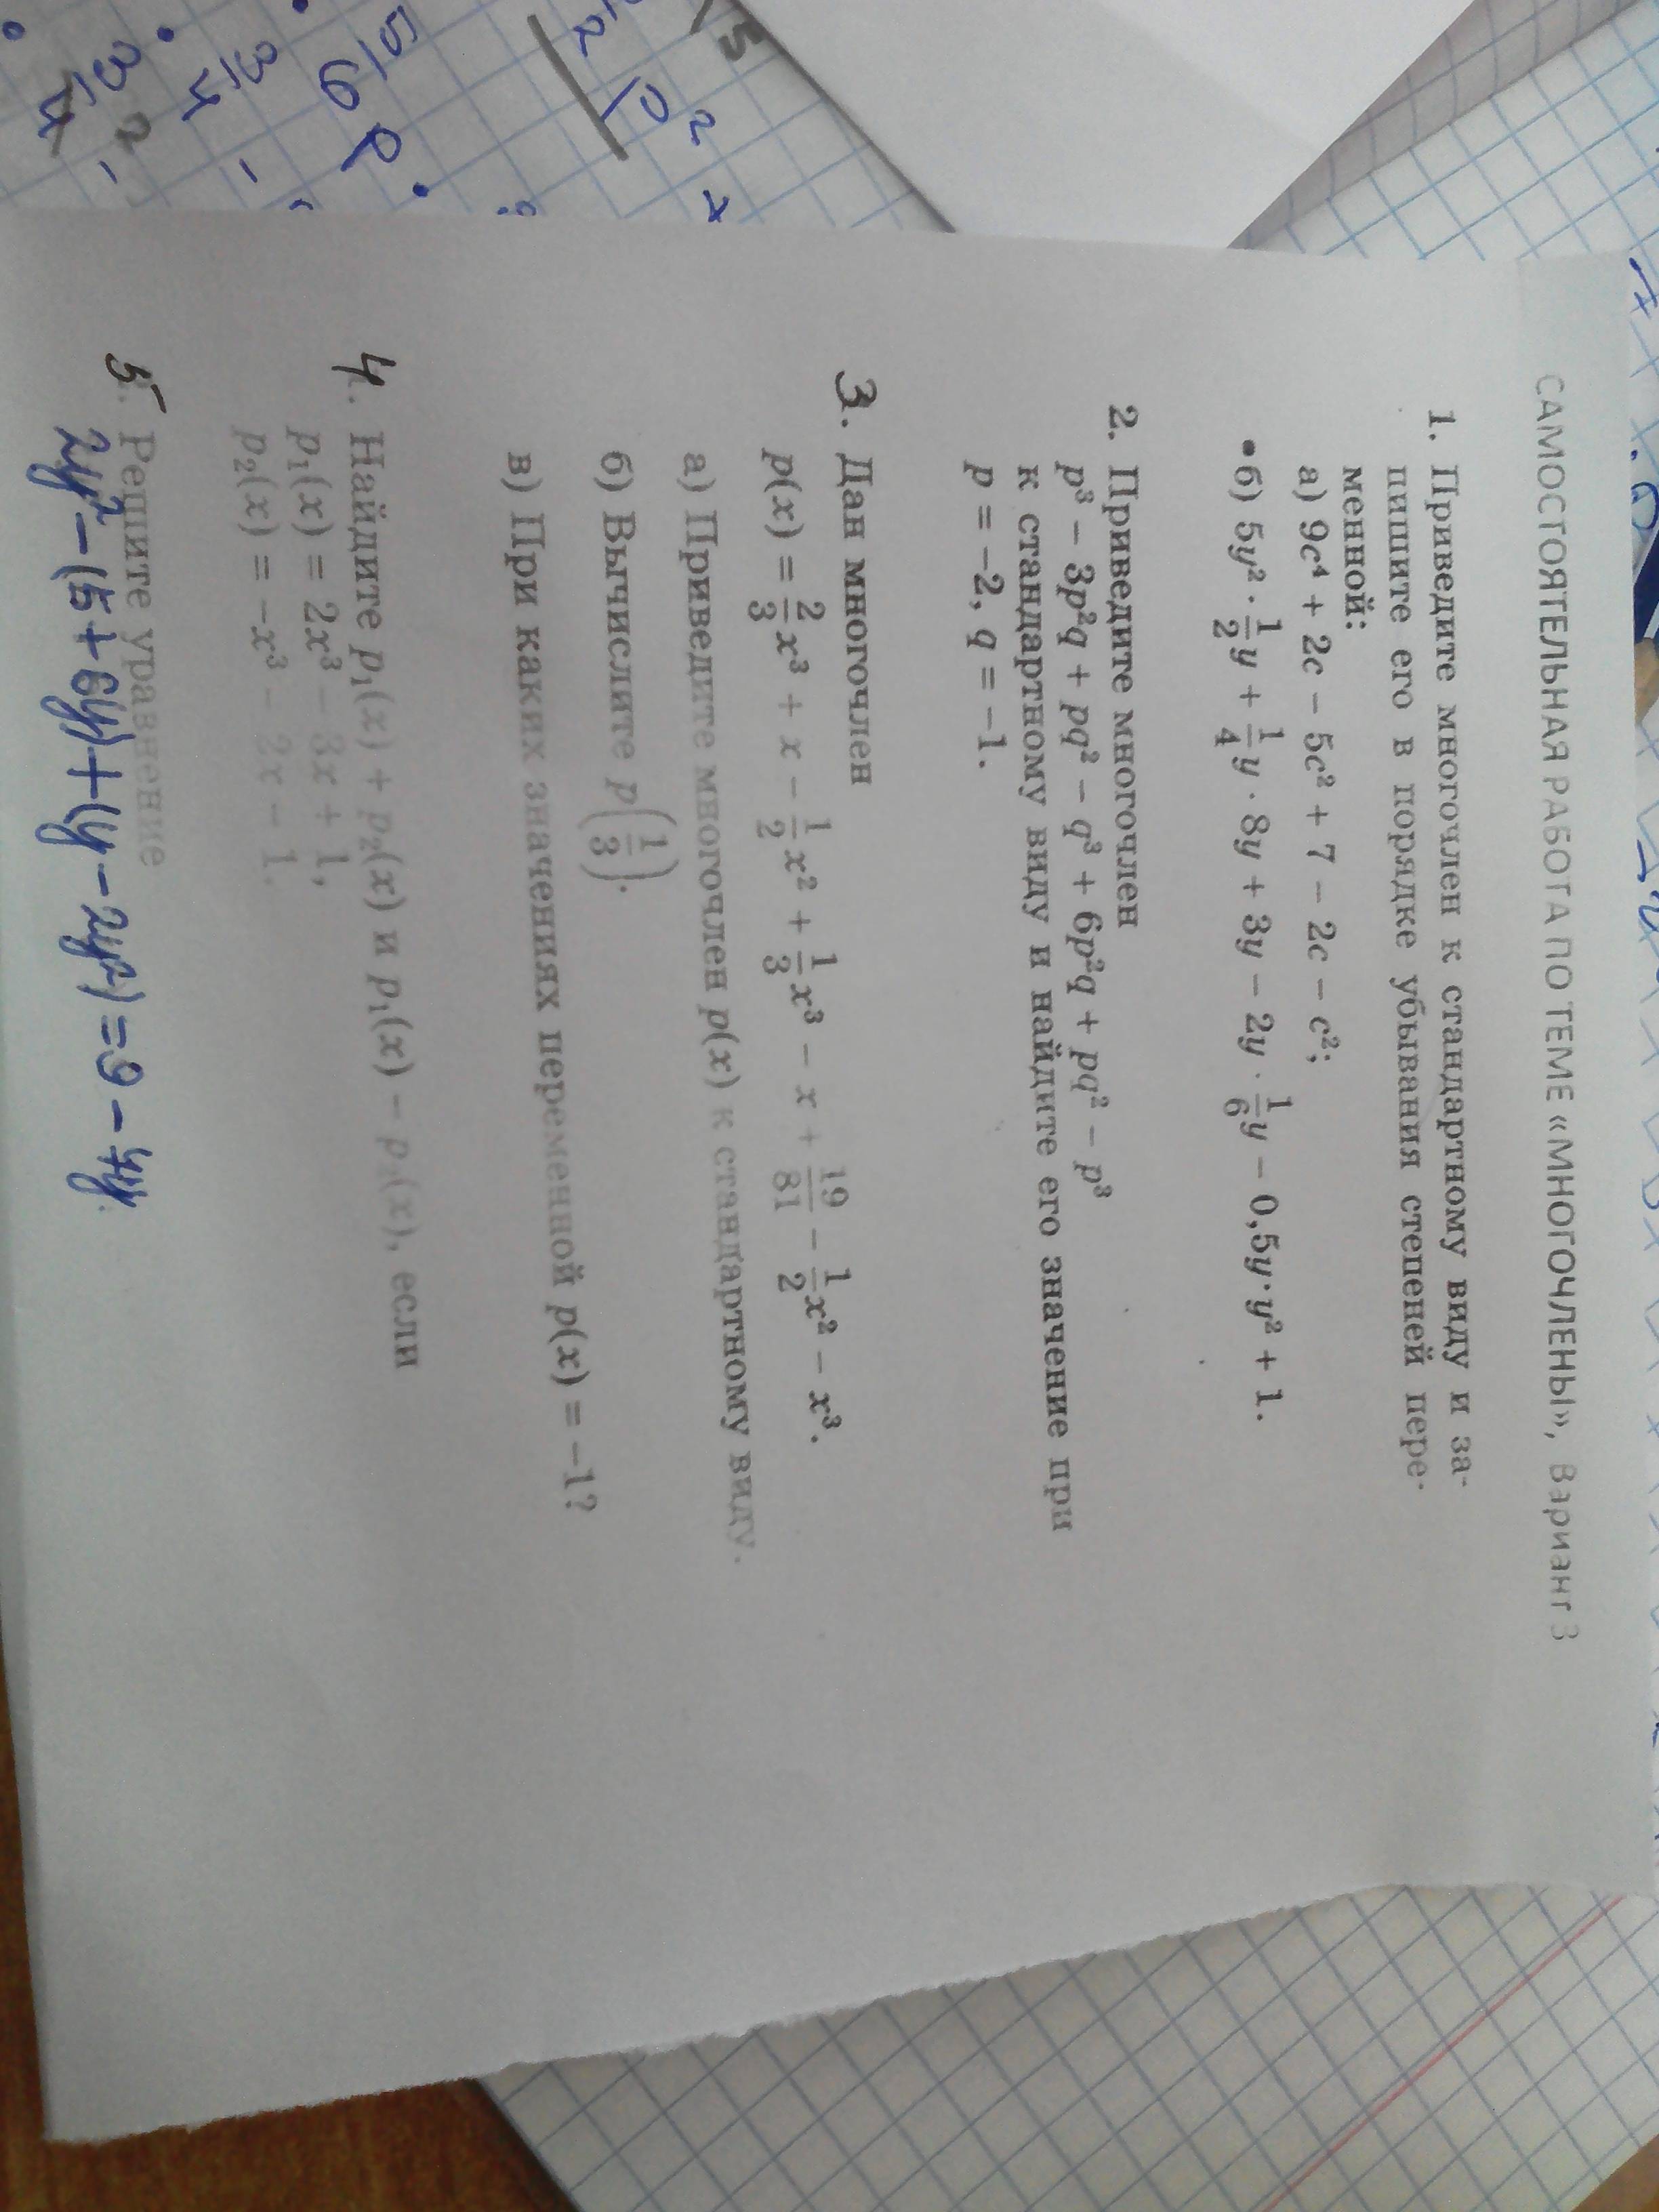 САМОСТОЯТЕЛЬНАЯ РАБОТА ПО ТЕМЕ «МНОГОЧЛЕНЫ», Вариант 3
1. Приведите многочлен к стандартному виду и за-
пишите его в порядке убывания степеней пере-
менной:
а) 9c⁴ + 2c − 5c² + 7 − 2c − c²;
• б) 5y² · 1/2 y + 1/4 y · 8y + 3y − 2y · 1/6 y − 0,5y · y² + 1.
2. Приведите многочлен
p³ − 3p²q + pq² − q³ + 6p²q + pq² − p³
к стандартному виду и найдите его значение при
p = −2, q = −1.
3. Дан многочлен
p(x) = 2/3 x³ + x − 1/2 x² + 1/3 x³ − x + 19/81 − 1/2 x² − x³.
а) Приведите многочлен p(x) к стандартному виду.
б) Вычислите p(1/3).
в) При каких значениях переменной p(x) = −1?
4. Найдите p₁(x) + p₂(x) и p₁(x) − p₂(x), если
p₁(x) = 2x³ − 3x + 1,
p₂(x) = −x³ − 2x − 1.
5. Решите уравнение
2y² − (5 + 6y) + (y − 2y²) = 9 − 4y